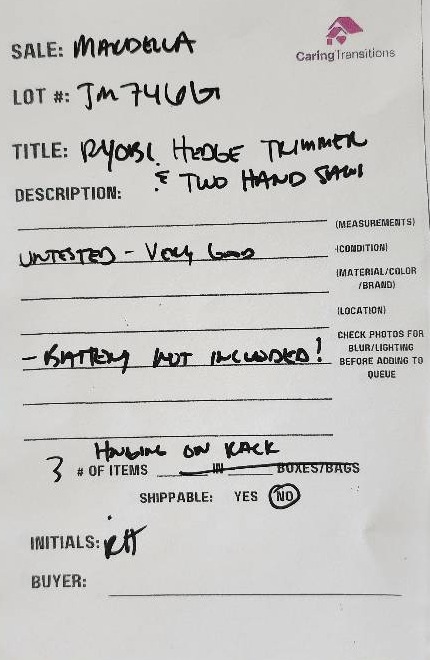 CaringTransitions
SALE: MANDELLA
LOT #: JM7466
TITLE: RYOBI HEDGE TRIMMER
& TWO HAND SAWS
DESCRIPTION:
(MEASUREMENTS)
UNTESTED - VERY GOOD (CONDITION)
(MATERIAL/COLOR
/BRAND)
(LOCATION)
- BATTERY NOT INCLUDED! CHECK PHOTOS FOR
BLUR/LIGHTING
BEFORE ADDING TO
QUEUE
HANGING ON RACK
3 # OF ITEMS IN BOXES/BAGS
SHIPPABLE: YES NO
INITIALS: RH
BUYER: